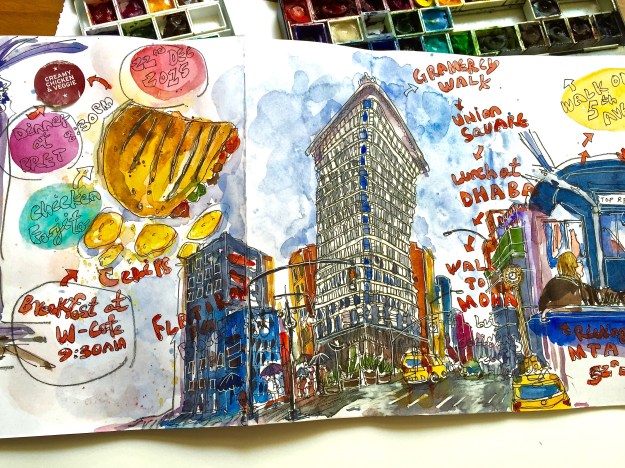 CREAMY
CHICKEN
& VEGGIE
22nd DEC
2015
Dinner
at
PRET
8:30pm
Chicken
Breakfast at
W-Cafe
9:30AM
GRAMERCY
WALK
UNION
SQUARE
Lunch at
DHABA
WALK
TO
MOMA
WALK ON
5th AVE
TOP RE
MTA